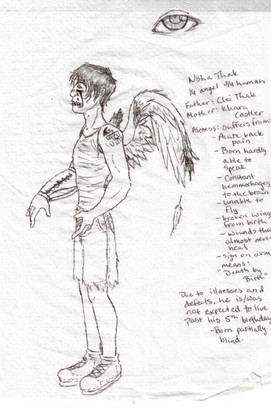 Nisha Thak
1/4 angel 3/4 human
Father: Clei Thak
Mother: Khara
Castler
suffers from:
- Acute back
pain
- Born hardly
able to
speak
- Constant
hemmorhages
to the brain
- unable to
fly
- broken wings
from birth
- wounds that
almost never
heal
- sign on arm
means:
"Death by
Birth"
Due to illnesses and
defects, he is/was
not expected to live
past his 5th birthday
- Born partially
blind.